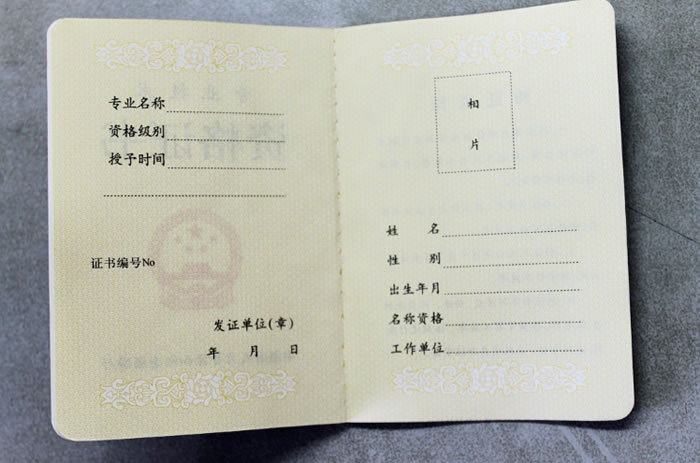 专业名称
资格级别
授予时间
证书编号No
发证单位(章)
年 月 日
相
片
姓 名
性 别
出生年月
名称资格
工作单位